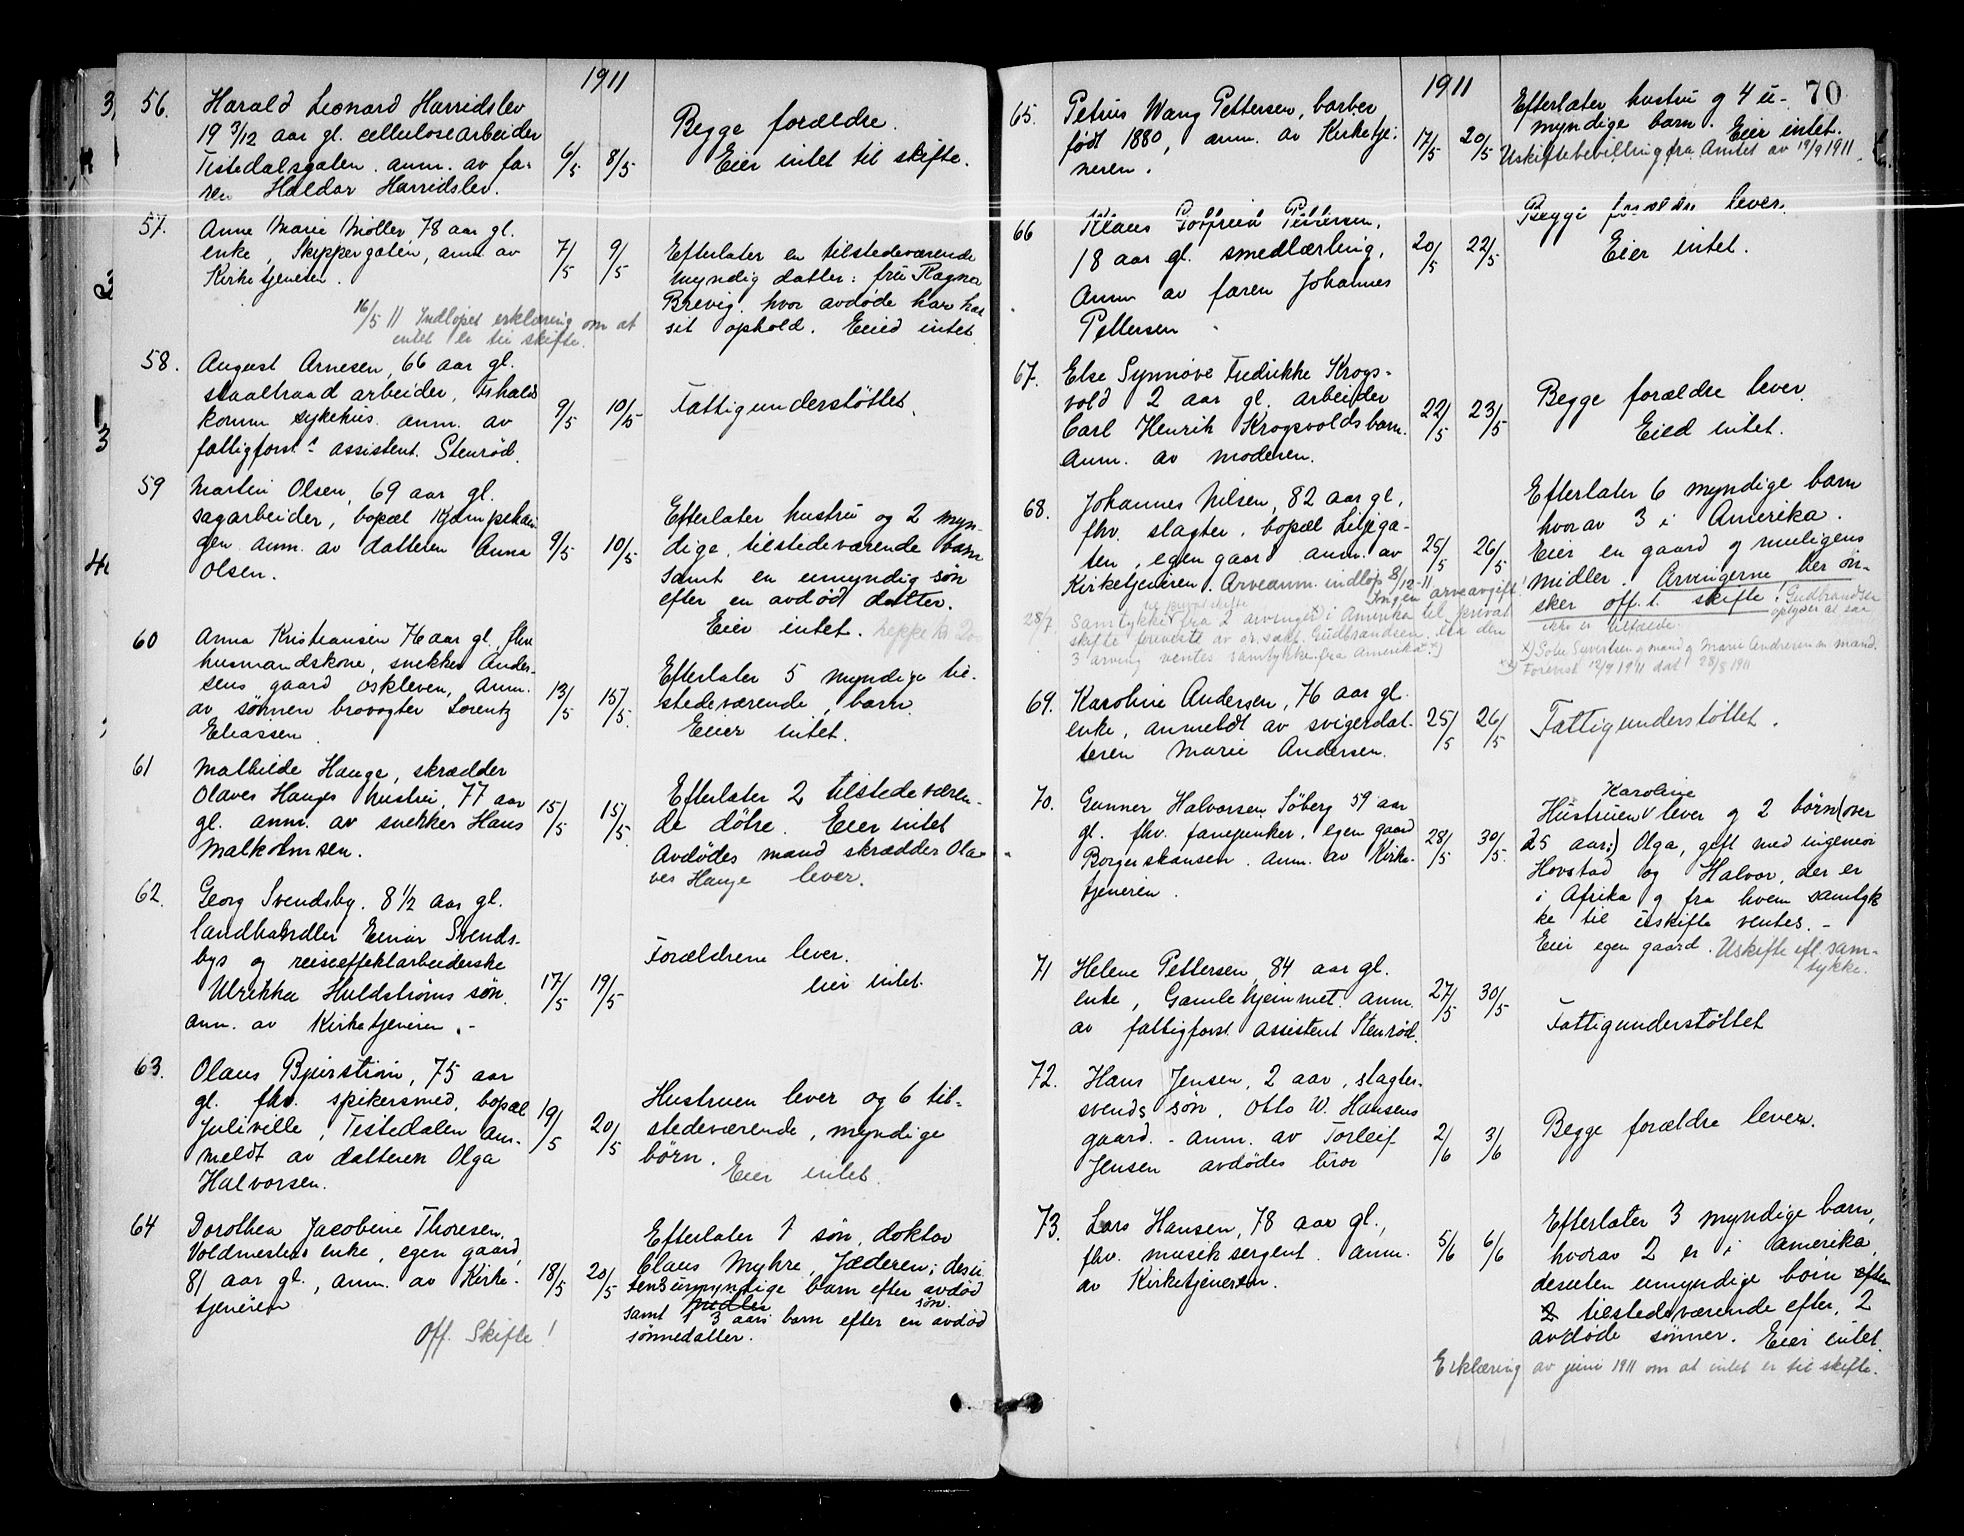 1911
56. Harald Leonard Harridslev
19 3/12 aar gl. cellulosearbeider
Tistedalsgaten. anm. av fa-
ren Haldor Harridslev.
6/5 8/5
Begge forældre.
Eier intet til skifte.
57. Anne Marie Møller 78 aar gl.
enke, Skippergaten, anm. av
Kirketjeneren.
7/5 9/5
Efterlater en tilstedeværende
myndig datter: fru Ragna
Brevig. hvor avdøde har hat
sit ophold. Eied intet
16/5 11 Indløpet erklæring om at
intet er til skifte.
58. August Arnesen, 66 aar gl.
staaltraad arbeider, Frhalds
komm sykehus. anm. av
fattigforst. assistent. Stenrød.
9/5 10/5
Fattigunderstøttet.
59 Martin Olsen, 69 aar gl.
sagarbeider, bopæl
anm. av datteren Anna
Olsen.
9/5 10/5
Efterlater hustru og 2 myn-
dige, tilstedeværende barn
samt en umyndig søn
efter en avdød datter.
Eier intet.
60 Anna Kristiansen 76 aar gl. fhv
husmandskone, snekker Ander-
sens gaard oskleven, anm.
av sønnen brovogter Lorentz
Eliassen
13/5 15/5
Efterlater 5 myndige til-
stedeværende, barn.
Eier intet.
61 Mathilde Hauge, skrædder
Olaves Hauges hustru, 77 aar
gl. anm. av snekker Hans
Malkolmsen.
15/5 15/5
Efterlater 2 tilstedeværen-
de døtre. Eier intet
Avdødes mand skrædder Ola-
ves Hauge lever.
62. Georg Svendsby. 8 1/2 aar gl.
landhandler Einar Svends-
bys og reiseeffektarbeiderske
Ulrikke Huldstrøms søn.
ann. av Kirketjeneren. -
17/5 19/5
Forældrene lever.
Eier intet.
63. Olaus Bjerstrøm, 75 aar
gl. fhv. spikersmed, bopæl
Juliville, Tistedalen an-
meldt av datteren Olga
Halvorsen.
19/5 20/5
Hustruen lever og 6 til-
stedeværende, myndige
børn.
Eier intet.
64 Dorothea Jacobine Thoresen,
Voldmesters enke, egen gaard,
81 aar gl., anm. av Kirke-
tjeneren
18/5 20/5
Efterlater 1 søn, doktor
Claus Myhre, Jæderen; desu
ten umyndige barn efter avdød
søn.
samt 1 3 aars barn efter en avdød
sønnedatter.
Off. Skifte!
70
1911
65. Petrus Wang Pettersen, barber
født 1880, anm. av Kirketje-
neren.
17/5 20/5
Efterlater hustru og 4 u-
myndige barn. Eier intet.
Uskiftebevilling fra Amtet av 19/9 1911.
66 Klaus Gotfried Pettersen,
18 aar gl. smedlærling,
Anm av faren Johannes
Pettersen
20/5 22/5
Begge forældre lever.
Eier intet.
67. Else Synnøve Fredrikke Krogs-
vold 2 aar gl. arbeider
Carl Henrik Krogsvolds barn.
Anm. av moderen.
22/5 23/5
Begge forældre lever.
Eied intet.
68. Johannes Nilsen, 82 aar gl,
fhv. slagter, bopæl Liljega-
ten, egen gaard anm. av
Kirketjeneren. Arveanm. indløp 8/12-11
Ingen arveavgift!
25/5 26/5
Efterlater 6 myndige barn
hvorav 3 i Amerika.
Eier en gaard og muligens
midler. Arvingerne her øn-
sker off. skifte! Gudbrandsen
oplyser at saa
ikke er tilfælde.
28/7 Samtykke fra 2 arvinger i Amerika til privat
skifte foreviste av or. sakf. Gudbrandsen. fra den
3 arving ventes samtykke fra Amerika x)
x) Forevist 12/9 1911 dat 28/8 1911
69. Karoline Andersen, 76 aar gl.
enke, anmeldt av svigerdat-
teren Marie Andersen.
25/5 26/5
Fattigunderstøttet.
70. Gunner Halvorsen Søberg 59 aar
gl. fhv. fanejunker, egen gaard
Borgerskansen. Anm. av Kirke-
tjeneren.
28/5 30/5
Karoline
Hustruen lever og 2 børn (over
25 aar:) Olga, gift med ingeniør
Hovstad og Halvor, der er
i Afrika og fra hvem samtyk
ke til uskifte ventes. -
Eier egen gaard. Uskifte efl. sam-
tykke.
71 Helene Pettersen, 84 aar gl.
enke, Gamlehjemmet. anm.
av fattigforst. assistent Stenrød.
27/5 30/5
Fattigunderstøttet
72. Hans Jensen, 2 aar, slagter-
svends søn, Otto W. Hansens
gaard. - anm. av Torleif
Jensen avdødes bror
2/6 3/6
Begge forældre lever.
73. Lars Hansen, 78 aar gl.,
fhv. musiksergent. anm.
av Kirketjeneren.
5/6 6/6
Efterlater 3 myndige barn,
hvorav 2 er i Amerika,
desuten umyndige børn efter
2 tilstedeværende efter, 2
avdøde sønner. Eier intet.
Erklæring av juni 1911 om at intet er til skifte.